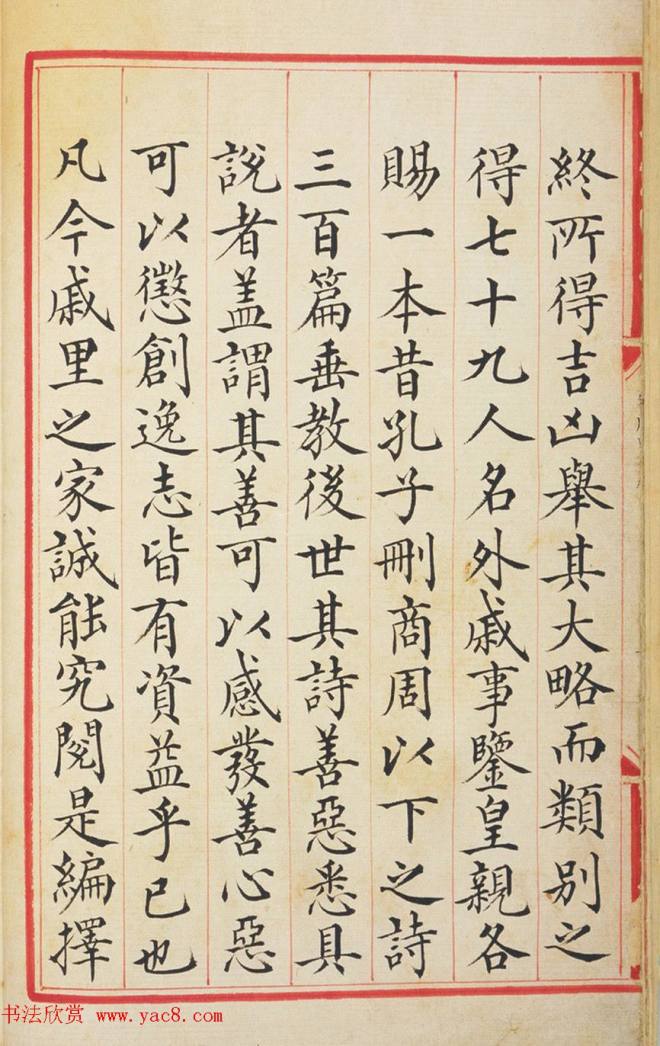 終所得吉凶舉其大略而類別之
得七十九人名外戚事鑒皇親各
賜一本昔孔子刪商周以下之詩
三百篇垂教後世其詩善惡悉具
說者盖謂其善可以感發善心惡
可以懲創逸志皆有資益乎已也
凡今戚里之家誠能究閱是編擇
书法欣赏 www.yac8.com